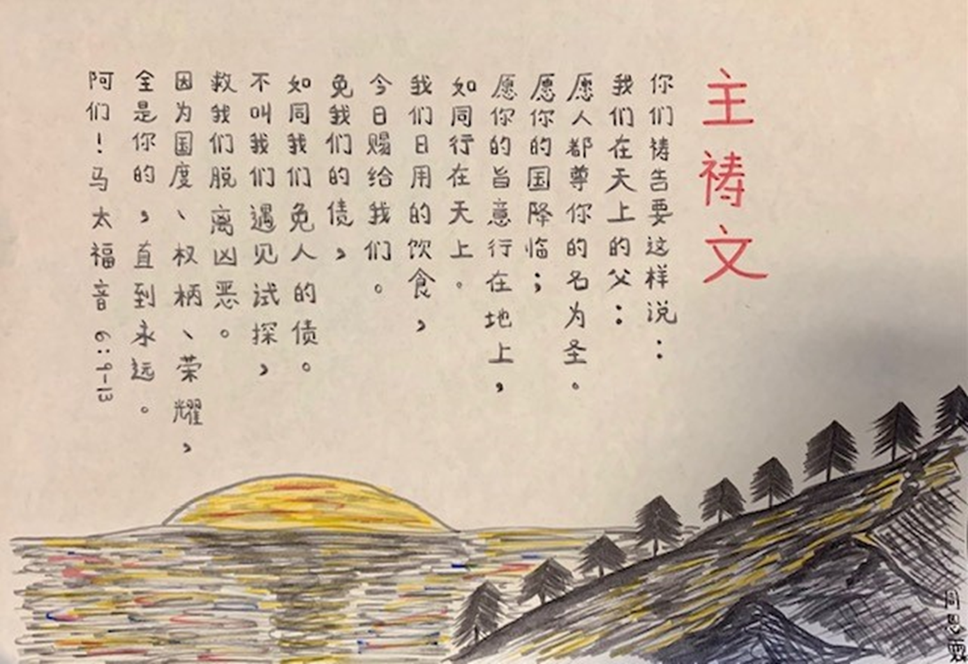 主祷文
你们祷告要这样说：
我们在天上的父：
愿人都尊你的名为圣。
愿你的国降临；
愿你的旨意行在地上，
如同行在天上。
我们日用的饮食，
今日赐给我们。
免我们的债，
如同我们免人的债。
不叫我们遇见试探，
救我们脱离凶恶。
因为国度、权柄、荣耀，
全是你的，直到永远。
阿们！马太福音 6:9-13